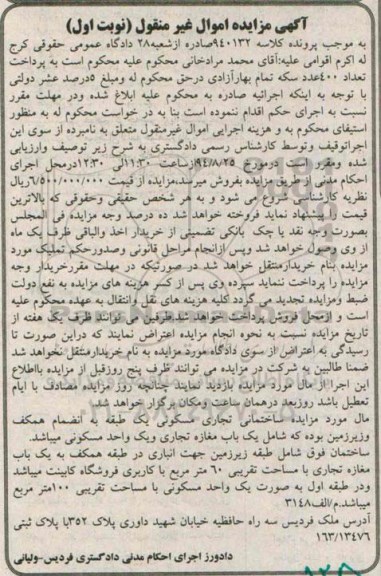 آگهی مزایده اموال غیر منقول (نوبت اول)
به موجب پرونده کلاسه ۹۴۰۱۳۲صادره ازشعبه۲۸ دادگاه عمومی حقوقی کرج
له اکرم اقوامی علیه:آقای محمد مرادخانی محکوم علیه محکوم است به پرداخت
تعداد ۴۰۰عدد سکه تمام بهارآزادی درحق محکوم له ومبلغ ۵درصد عشر دولتی
با توجه به اینکه اجرائیه صادره به محکوم علیه ابلاغ شده ودر مهلت مقرر
نسبت به اجرای حکم اقدام ننموده است بنا به در خواست محکوم له به منظور
استیفای محکوم به و هزینه اجرایی اموال غیرمنقول متعلق به نامبرده از سوی این
اجراتوقیف وتوسط کارشناس رسمی دادگستری به شرح زیر توصیف وارزیابی
شده ومقرر است درمورخ ۹۴/۸/۲۵ ازساعت ۱۱:۳۰الی ۱۲:۳۰درمحل اجرای
احکام مدنی از طریق مزایده بفروش میرسد.مزایده از قیمت ۶/۵۰۰/۰۰۰/۰۰۰ریال
نظریه کارشناسی شروع می شود و به هر شخص حقیقی وحقوقی که بالاترین
قیمت را پیشنهاد نماید فروخته خواهد شد ده درصد وجه مزایده فی المجلس
بصورت وجه نقد یا چک بانکی تضمینی از خریدار اخذ والباقی ظرف یک ماه
از وی وصول خواهد شد وپس ازانجام مراحل قانونی وصدورحکم تملیک مورد
مزایده بنام خریدارمنتقل خواهد شد در صورتیکه در مهلت مقررخریدار وجه
مزایده را پرداخت ننماید سپرده وی پس از کسر هزینه های مزایده به نفع دولت
ضبط ومزایده تجدید می گردد کلیه هزینه های نقل وانتقال به عهده محکوم علیه
است و ازمحل فروش پرداخت خواهد شد.طرفین می توانند ظرف یک هفته از
تاریخ مزایده نسبت به نحوه انجام مزایده اعتراض نمایند که دراین صورت تا
رسیدگی به اعتراض از سوی دادگاه مورد مزایده به نام خریدارمنتقل نخواهد شد
ضمنا طالبین به شرکت در مزایده می توانند ظرف پنج روزقبل از مزایده بااطلاع
این اجرا از مال مورد مزایده بازدید نمایند چنانچه روز مزایده مصادف با ایام
تعطیل باشد روزبعد درهمان ساعت ومکان برگزار خواهد شد.
مال مورد مزایده ساختمانی تجاری مسکونی یک طبقه به انضمام همکف
وزیرزمین بوده که شامل یک باب مغازه تجاری ویک واحد مسکونی میباشد.
ساختمان فوق شامل طبقه زیرزمین جهت انباری در طبقه همکف به یک باب
مغازه تجاری با مساحت تقریبی ۶۰ متر مربع با کاربری فروشگاه کابینت میباشد
ودر طبقه اول به صورت یک واحد مسکونی با مساحت تقریبی ۱۰۰متر مربع
میباشد.م/الف۳۱۴۸
آدرس ملک فردیس سه راه حافظیه خیابان شهید داوری پلاک ۳۵۲با پلاک ثبتی
۱۶۳/۱۳۴۷۶
دادورز اجرای احکام مدنی دادگستری فردیس-ولیانی